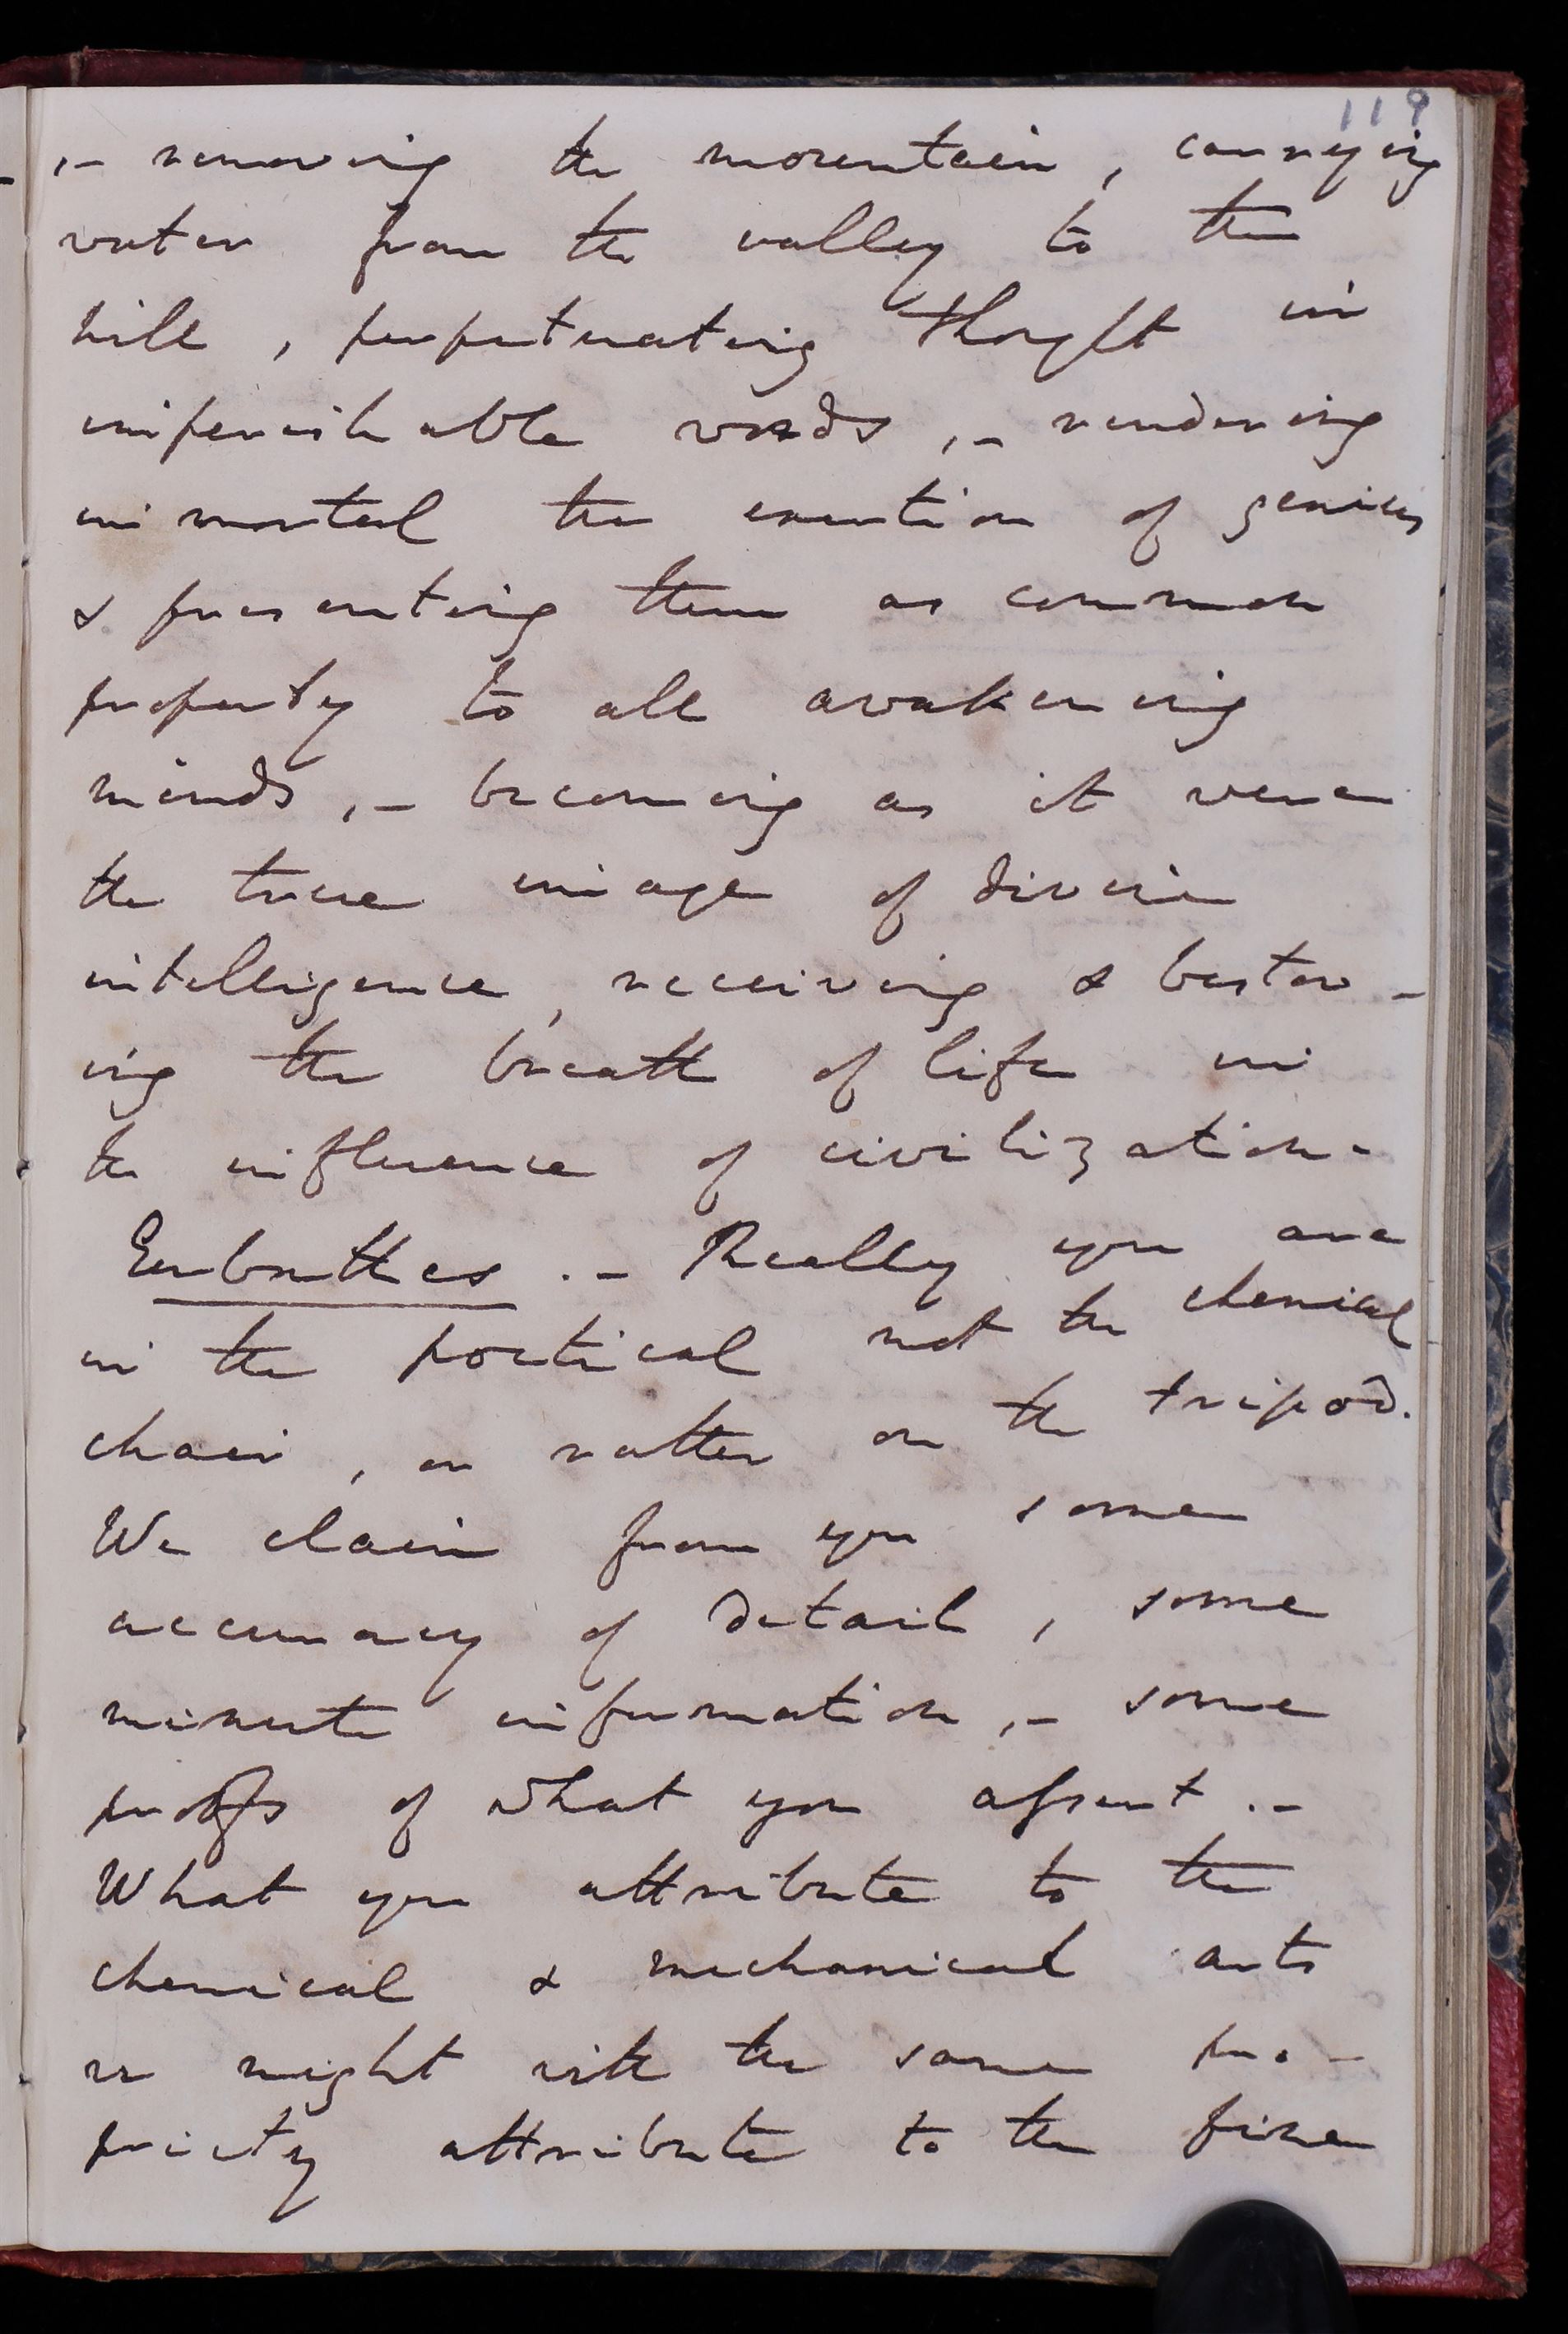 119
,- removing the mountain, carrying
water from the valley to the
hill, perpetuating thought in
imperishable words,- rendering
immortal the exertion of genius
& presenting them as common
property to all awakening
minds,- becoming as it were
the true image of divine
intelligence, receiving & bestow-
ing the breath of life in
the influence of civilization.
Eubathes .- Really you are
in the poetical not the chemical
chair, or rather on the tripod.
We claim from you some
accuracy of detail, some
minute information,- some
proofs of what you assert.-
What you attribute to the
chemical & mechanical arts
we might with the same pro-
priety attribute to the fine